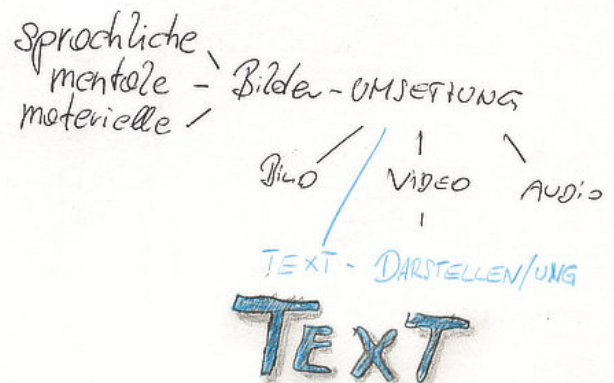 sprachliche
mentale - Bilder - UMSETZUNG
materielle
BilD VIDEO AUDiO
TEXT - DARSTELLEN/UNG
TEXT